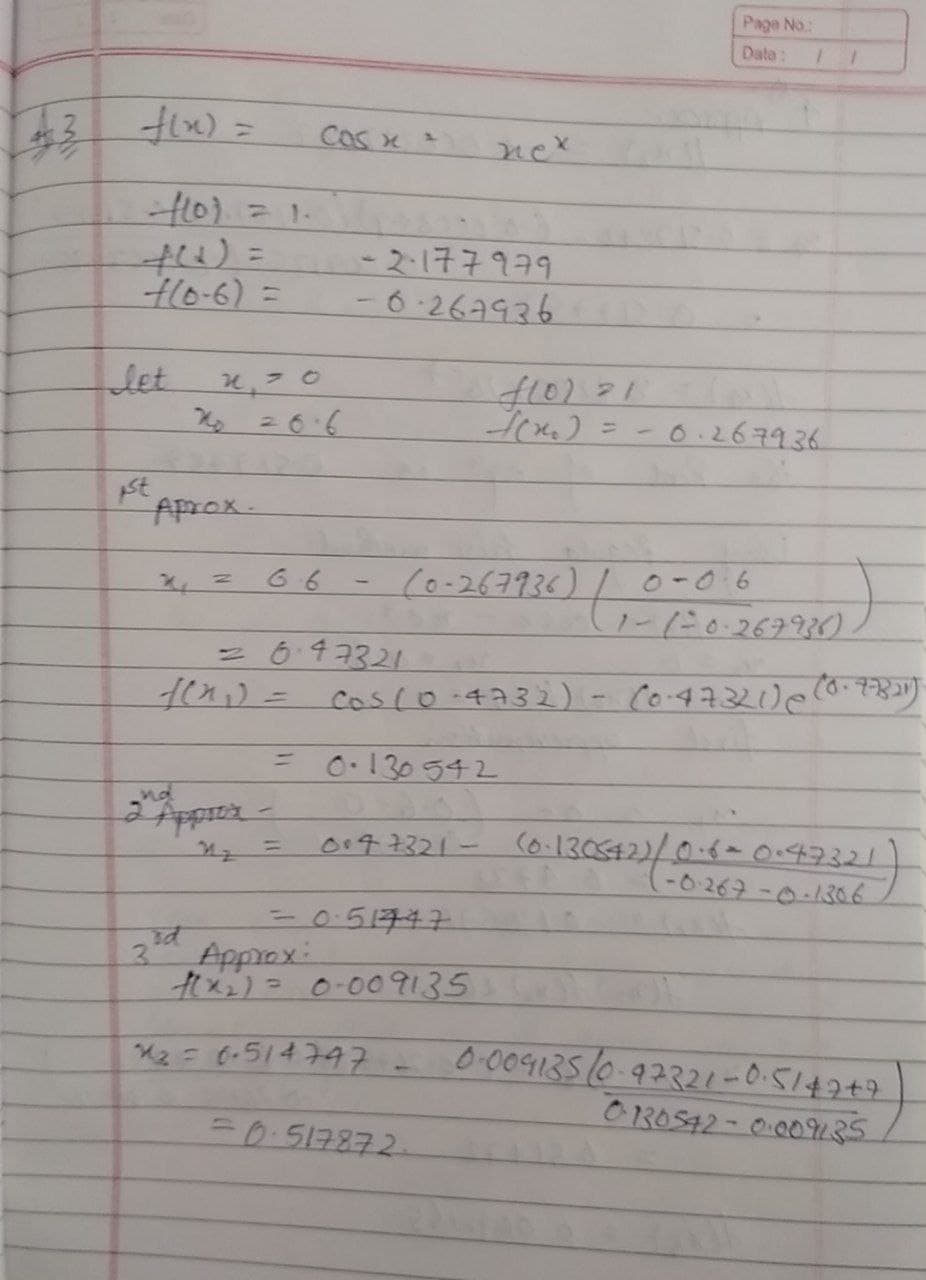 Page No.:
Date : / /
A3 f(x) = cos x - xe^x
f(0) = 1.
f(1) = -2.177979
f(0.6) = -0.267936
let x₁ = 0 f(0) = 1
x₀ = 0.6 f(x₀) = -0.267936
1st Aprox.
x₁ = 0.6 - (0.267936) ( 0-0.6 / 1-(-0.267936) )
= 0.47321
f(x₁) = cos(0.4732) - (0.47321)e^(0.47321)
= 0.130542
2nd Approx -
x₂ = 0.47321 - (0.130542) ( 0.6-0.47321 / -0.267-0.1306 )
= 0.51447
3rd Approx:
f(x₂) = 0.009135
x₃ = 0.514747 - 0.009135 ( 0.47321-0.514747 / 0.130542-0.009135 )
= 0.517872.